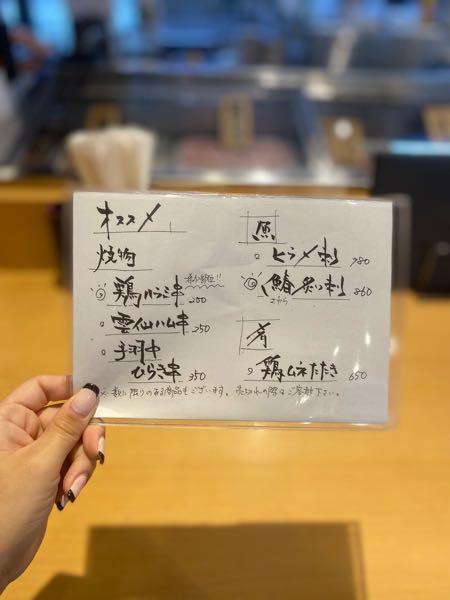 オススメ
焼物
希少部位!!
鶏ハラミ串 200
雲仙ハム串 250
手羽中
ひらき串 350
魚
ヒラメ刺 780
鰆炙り刺 860
さわら
肴
鶏ムネたたき 650
※数に限りのある商品もございます。売切れの際はご容赦下さい。